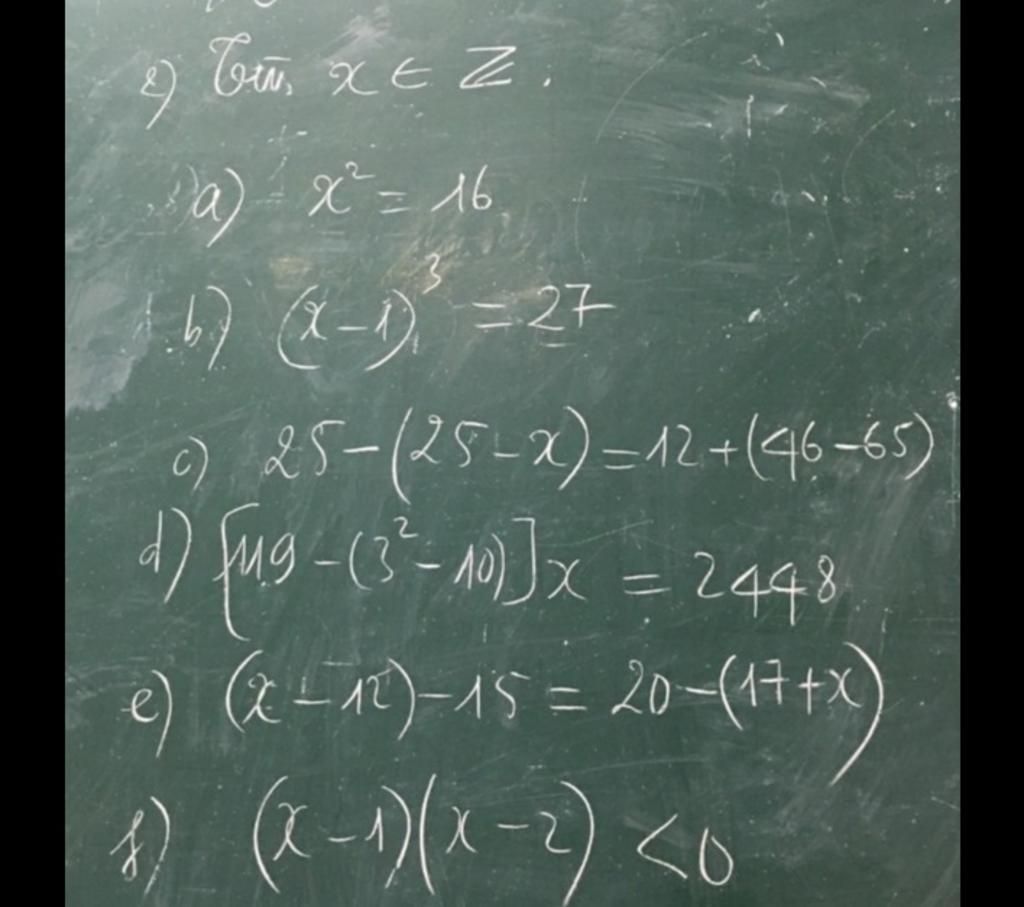 2) Tìm x ∈ Z.
a) x² = 16
b) (x-1)³ = 27
c) 25-(25-x)=12+(46-65)
d) [119-(3²-10)]x = 2448
e) (x-12)-15 = 20-(17+x)
f) (x-1)(x-2) < 0